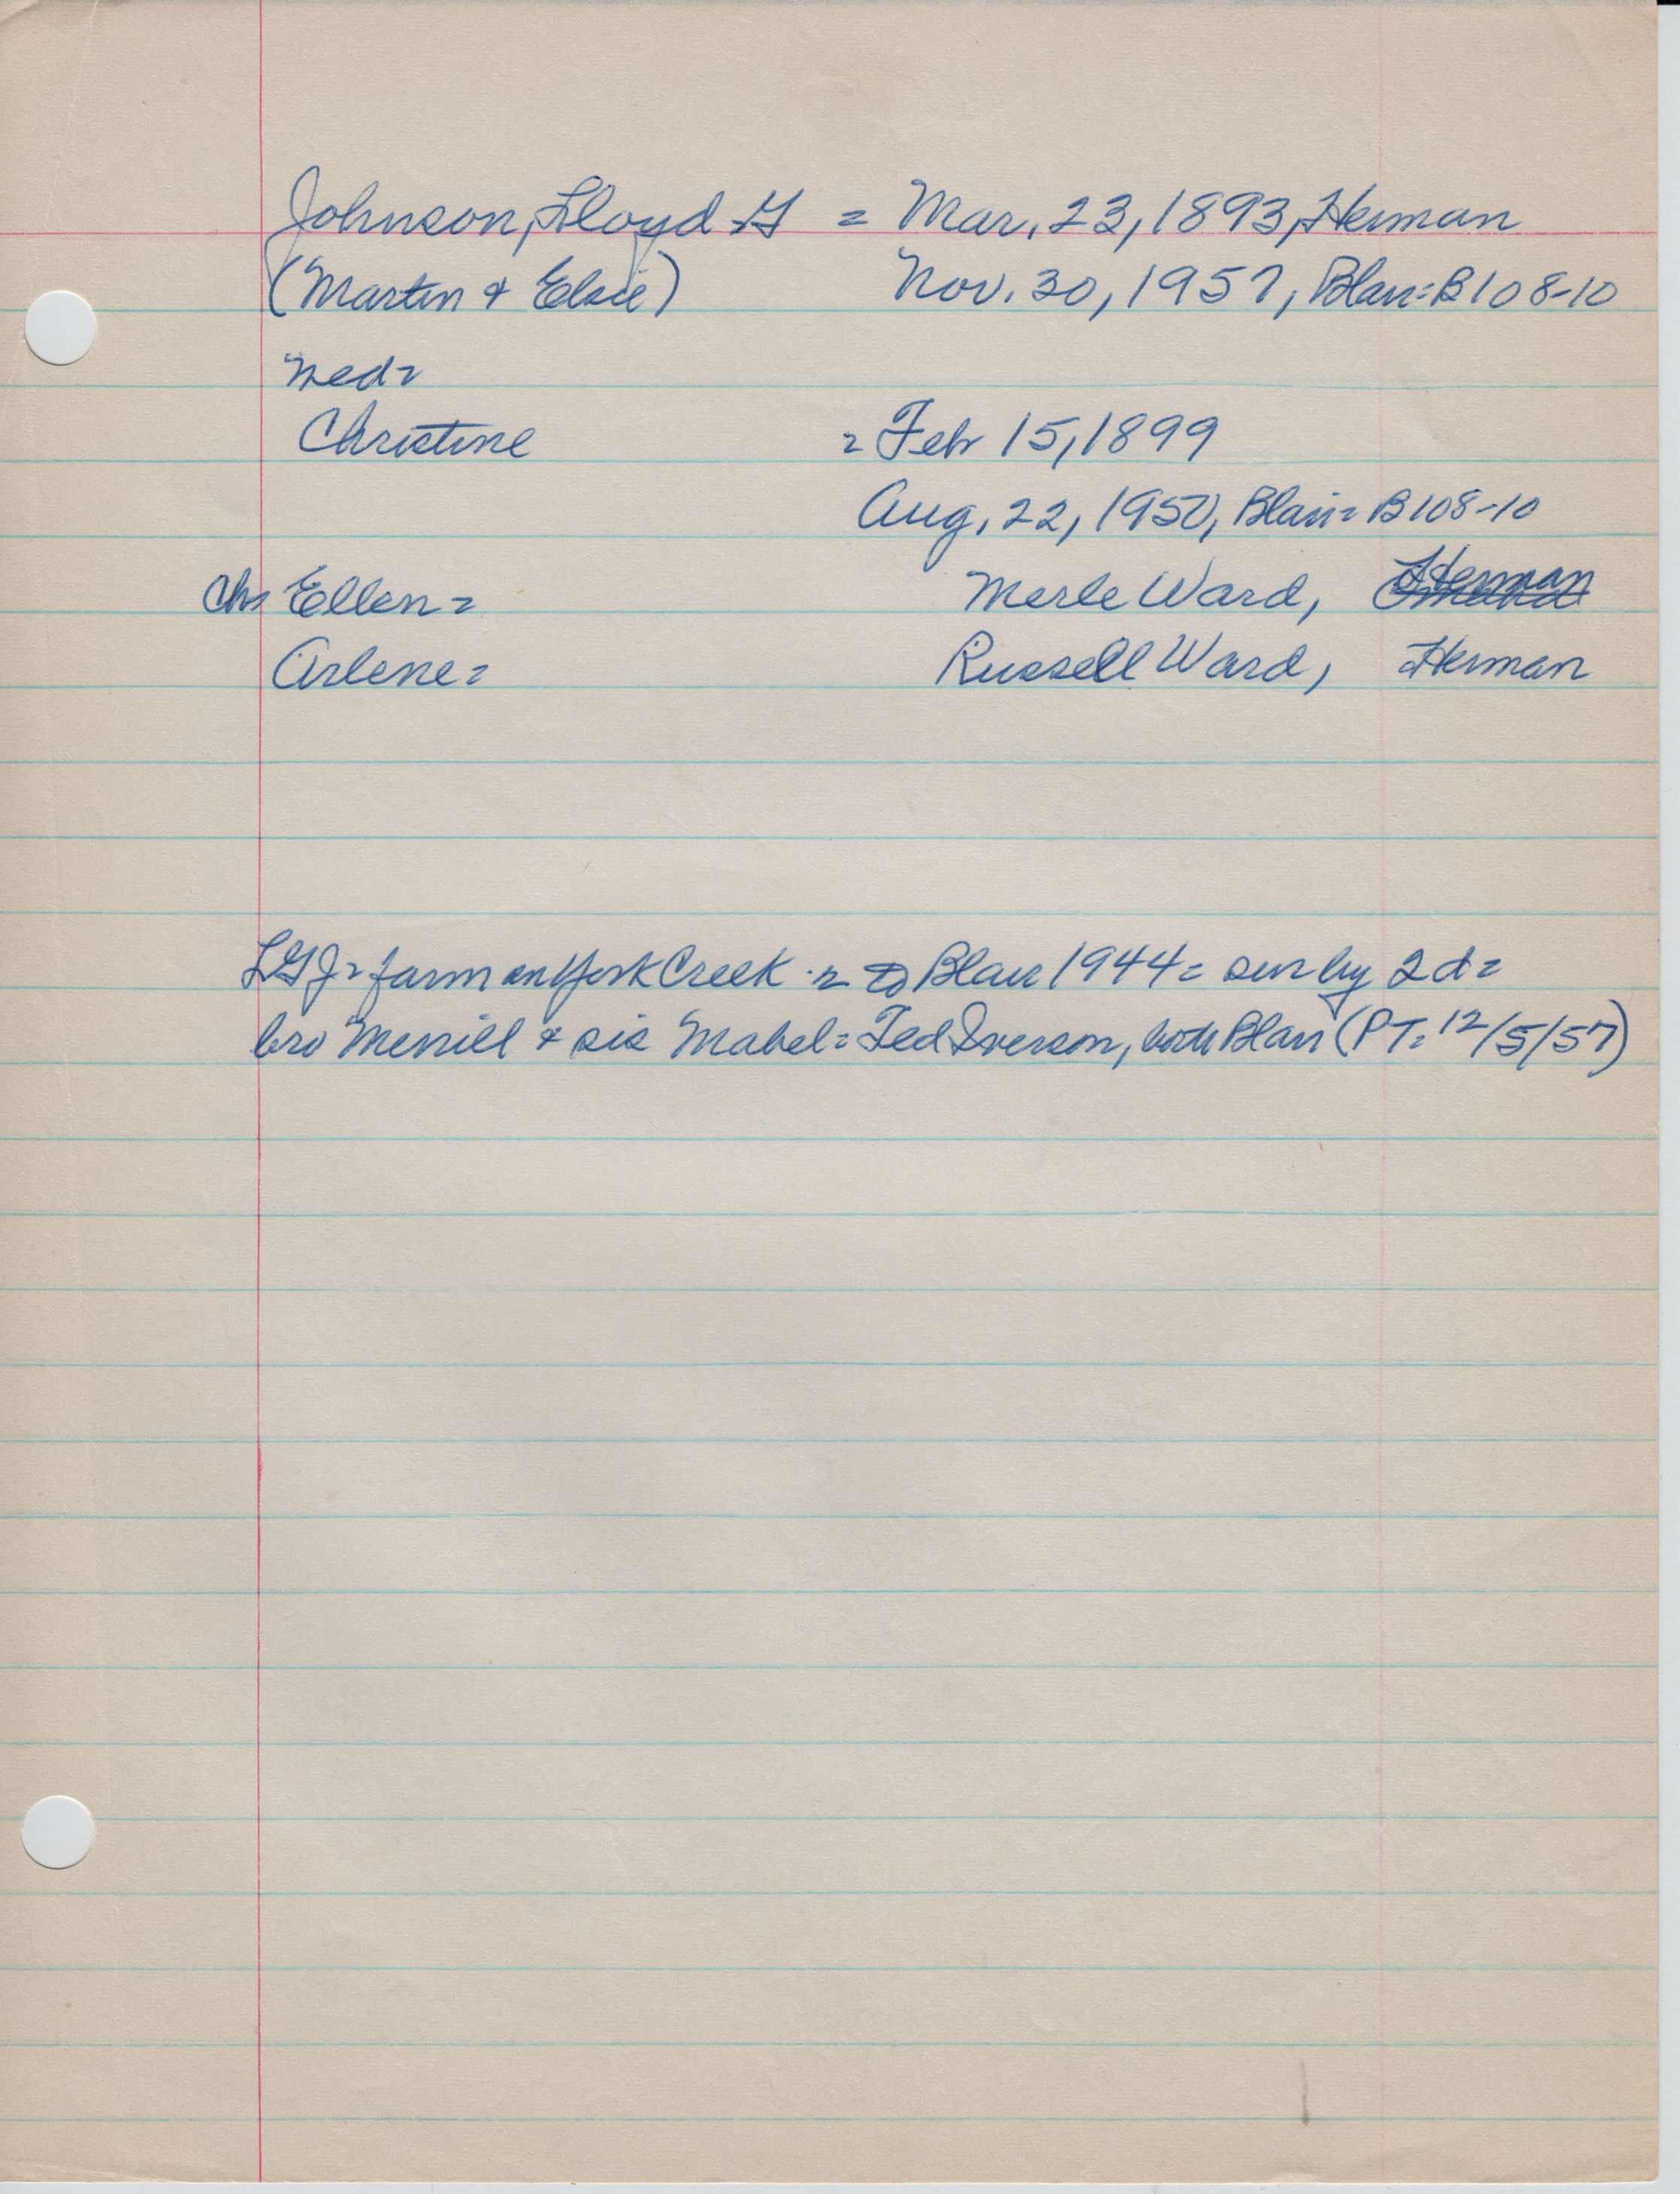 Johnson, Lloyd G = Mar. 23, 1893, Herman
(Martin & Elsie) Nov. 30, 1957, Blair = B108-10
med =
Christine = Feb 15, 1899
Aug. 22, 1950, Blair = B108-10
Chs Ellen = Merle Ward, Herman
Arlene = Russell Ward, Herman
LGJ = farm on York Creek = to Blair 1944 = sur by 2d =
bro Merrill & sis Mabel = Ted Iverson, both Blair (PT = 12/5/57)